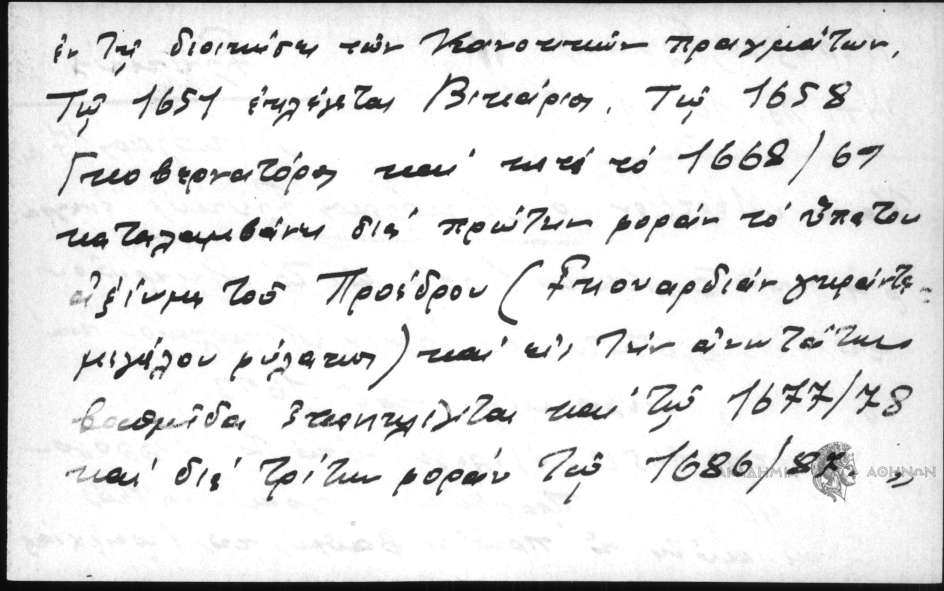 ἐν τῇ διοικήσει τῶν Κοινοτικῶν πραγμάτων.
Τῷ 1651 ἐκλέγεται Βικάριος, τῷ 1658
Γκοβερνατόρος καὶ κατὰ τό 1668/69
καταλαμβάνει διὰ πρώτην φοράν τό ὕπατον
ἀξίωμα τοῦ Προέδρου (Γκουαρδιάν γκράντε =
μεγάλου φύλακος) καὶ εἰς τὴν ἀνωτάτην
βαθμῖδα ἐπανεκλέγεται καὶ τῷ 1677/78
καὶ διὰ τρίτην φοράν τῷ 1686/87. »
ΑΚΑΔΗΜΙΑ ΑΘΗΝΩΝ